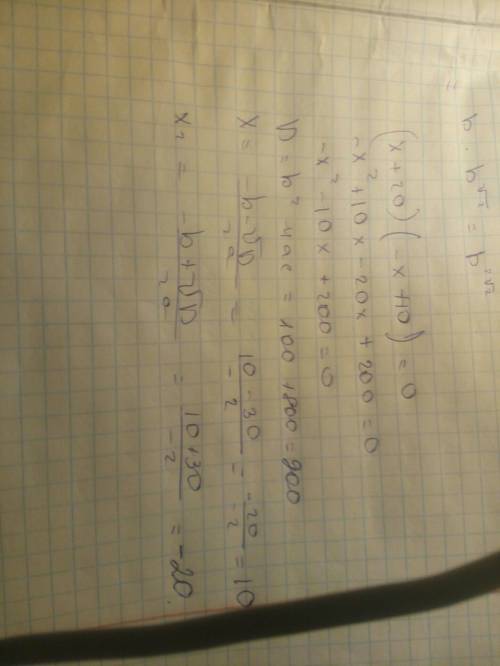 b · b^√2 = b^=√2
(x+20)(-x+10)=0
-x²+10x-20x+200=0
-x²-10x+200=0
D=b²-4ac=100+800=900
x=(-b-√D)/2a=(10-30)/-2=(-20)/-2=10
x₂=(-b+√D)/2a=(10+30)/-2=-20.